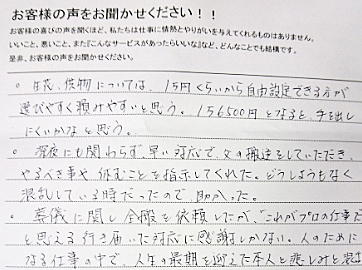 お客様の声をお聞かせください！！
お客様の喜びの声を聞くほど、私たちは仕事に情熱とやりがいを与えてくれるものはありません。
いいこと、悪いこと、また『こんなサービスがあったらいいな』など、どんなことでも結構です。
是非、お客様の声をお聞かせください。
・生花、供物については、1万円くらいから自由設定できる方が
選びやすく頼みやすいと思う。156500円となると、手を出し
にくいかなと思う。
・深夜にも関わらず、早い対応で、父の搬送をしていただき、
やるべき事や休むことを指示してくれた。どうしようもなく
混乱している時だったので助かった。
・葬儀に関し全般を依頼したが、"これがプロの仕事だ
と思える行き届いた対応に感謝しかない。人のために
なる仕事の中で、人生の最期を迎えた本人と悲しみと